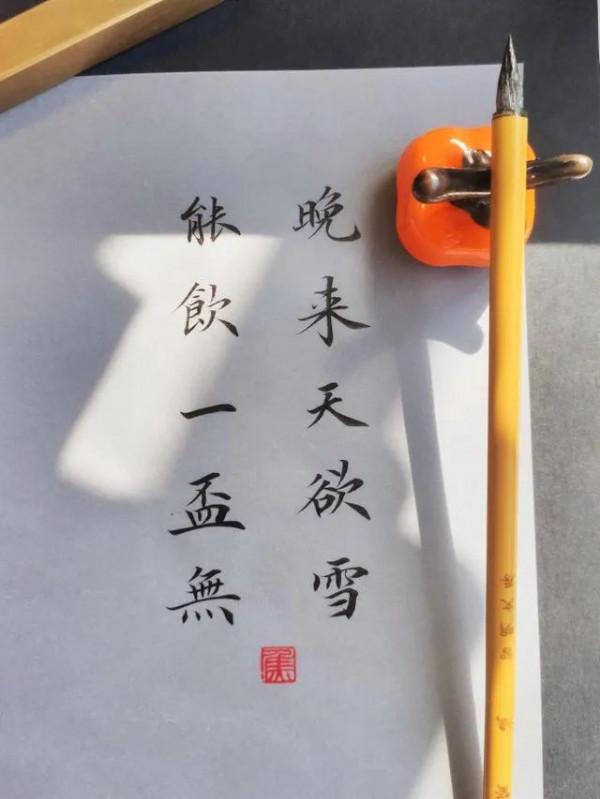 晚来天欲雪
能飲一盃無